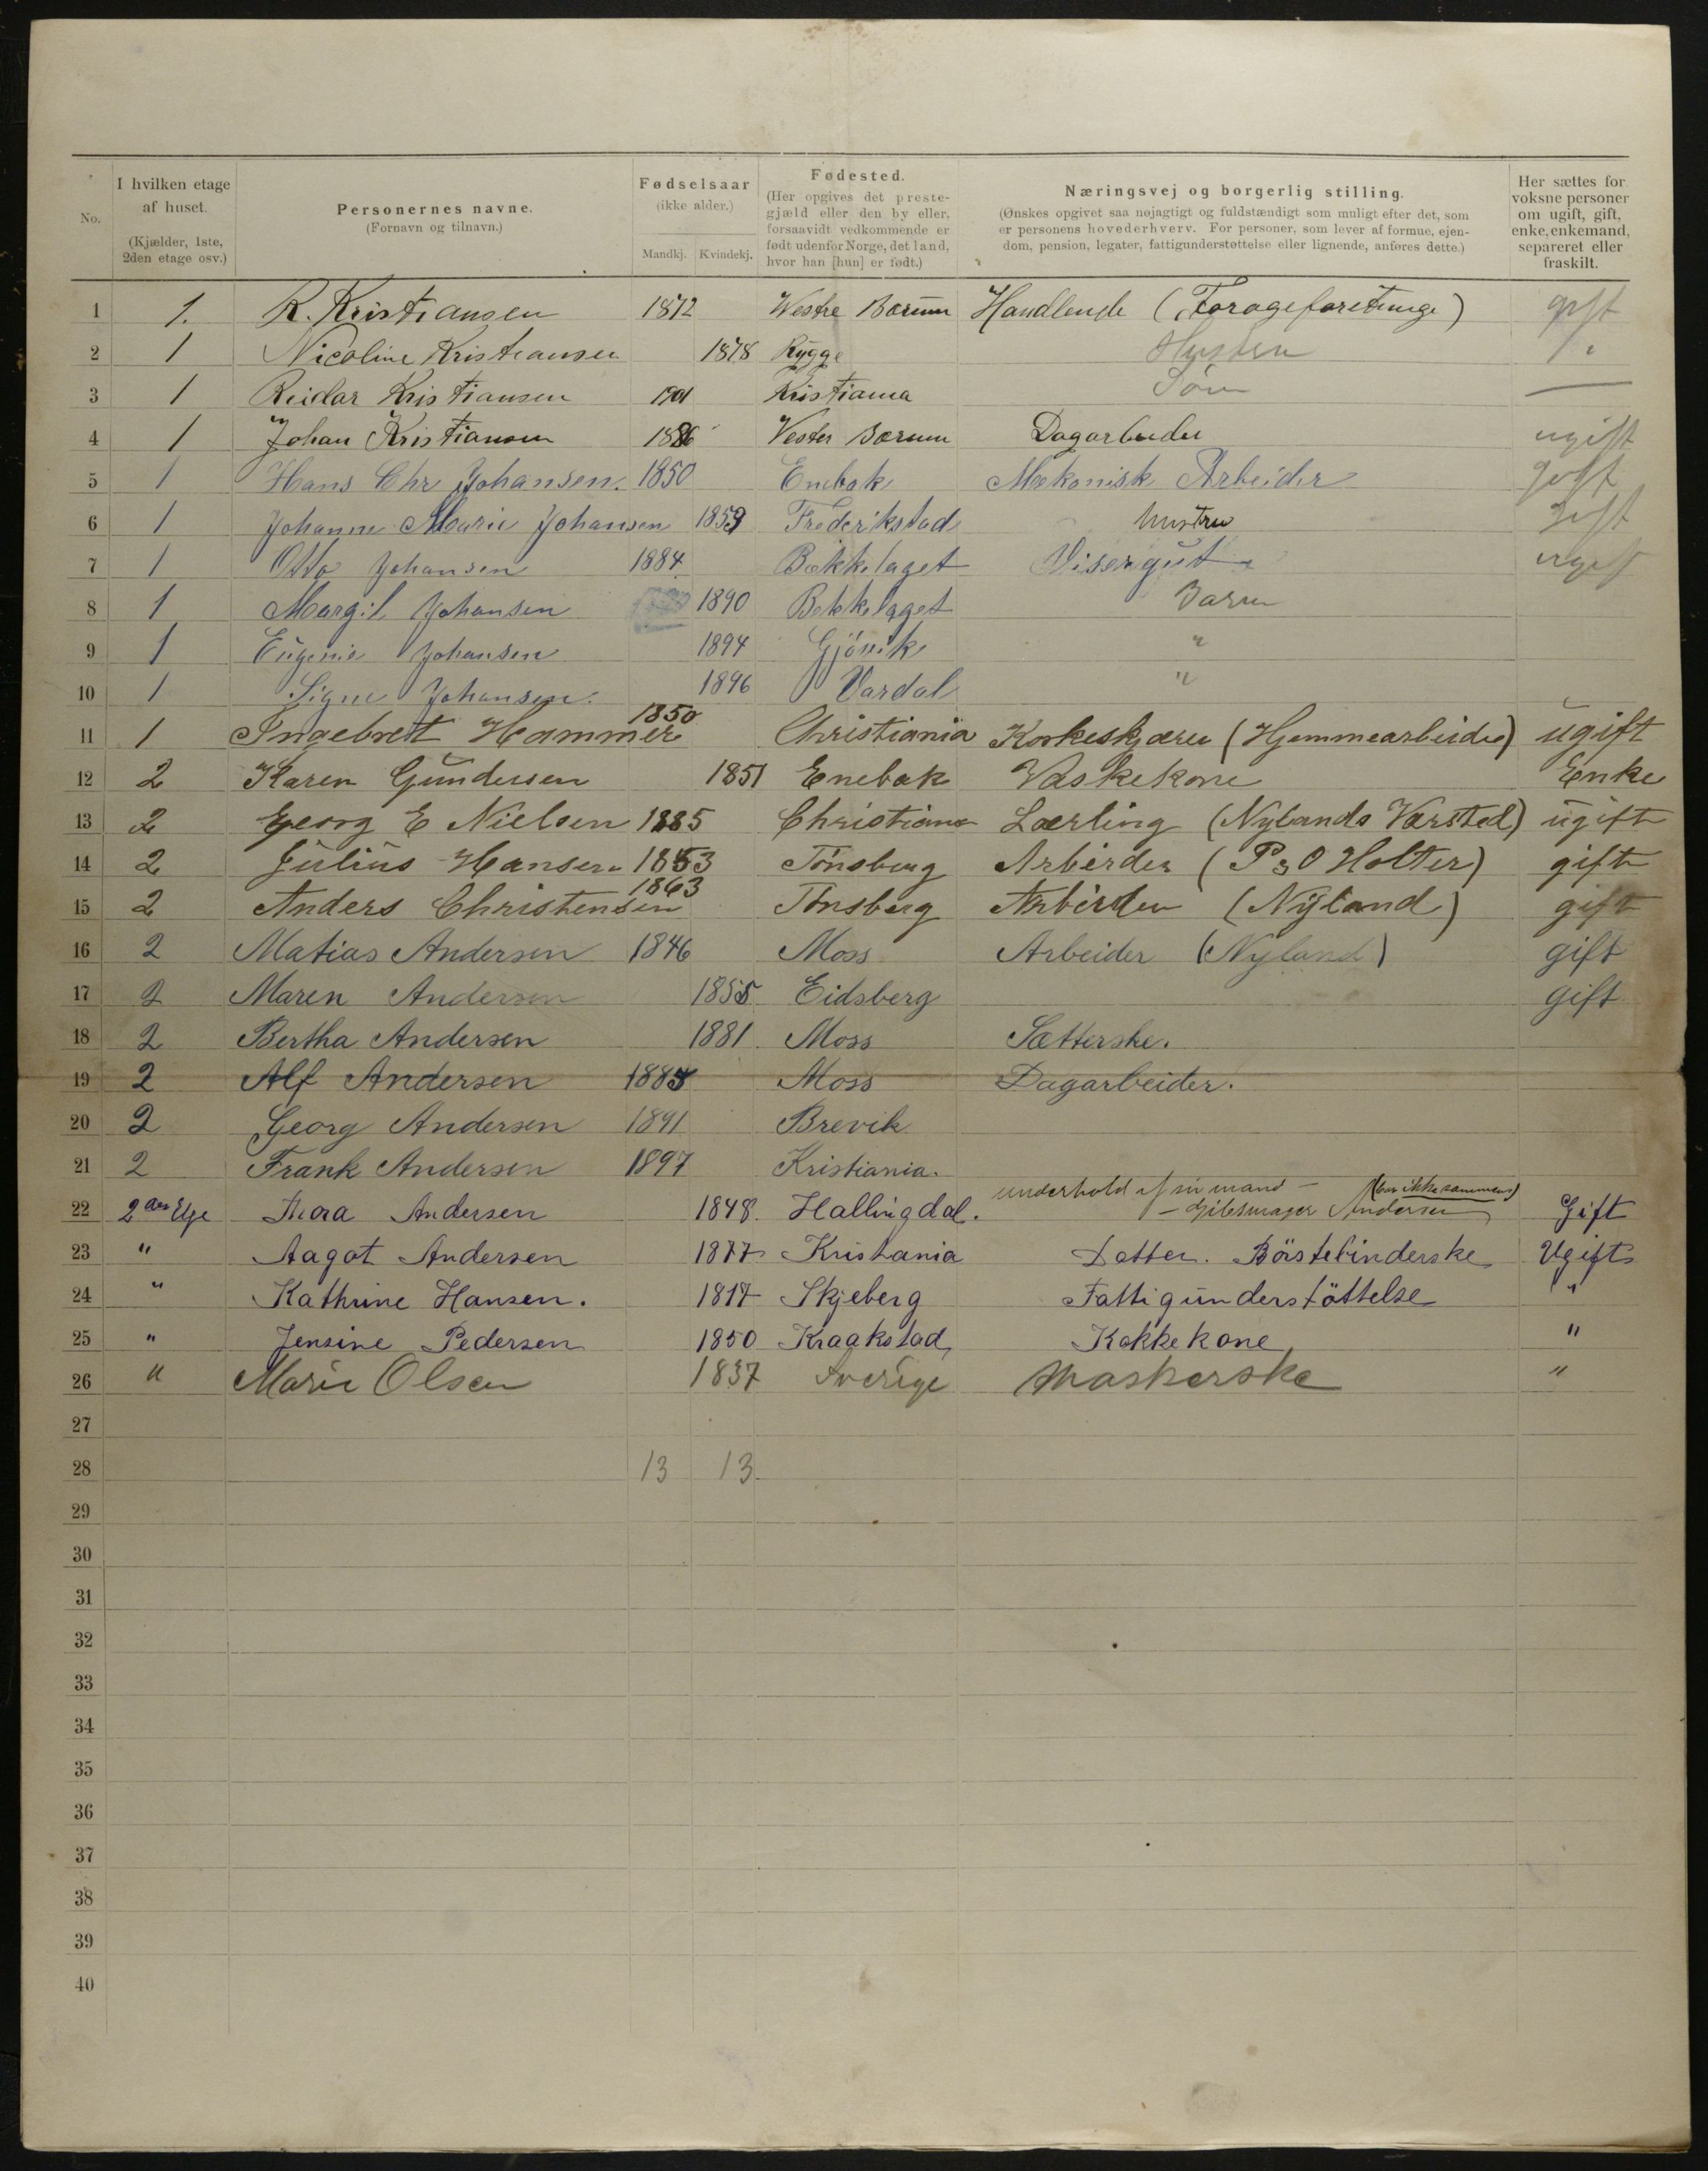 No.
I hvilken etage af huset. (Kjælder, 1ste, 2den etage osv.)
Personernes navne. (Fornavn og tilnavn.)
Fødselsaar (ikke alder.) Mandkj. Kvindekj.
Fødested. (Her opgives det prestegjæld eller den by eller, forsaavidt vedkommende er født udenfor Norge, det land, hvor han [hun] er født.)
Næringsvej og borgerlig stilling. (Ønskes opgivet saa nøjagtigt og fuldstændigt som muligt efter det, som er personens hovederhverv. For personer, som lever af formue, ejendom, pension, legater, fattigunderstøttelse eller lignende, anføres dette.)
Her sættes for voksne personer om ugift, gift, enke, enkemand, separeret eller fraskilt.
1 1. R. Kristiansen 1872 Westre Bærum Handlende (Forageforetninge) gift
2 1 Nicoline Kristiansen 1878 Rygge Hustru
3 1 Reidar Kristiansen 1901 Kristiania Søn —
4 1 Johan Kristiansen 1886 Vester Bærum Dagarbeider ugift
5 1 Hans Chr Johansen. 1850 Enebak Mekanisk Arbeider gift
6 1 Johanne Marie Johansen 1859 Frederikstad hustru gift
7 1 Otto Johansen 1884 Bækkelaget Visergut ugift
8 1 Margit Johansen 1890 Bekkelaget Barn
9 1 Eugenie Johansen 1894 Gjövik "
10 1 Signe Johansen. 1896 Vardal "
11 1 Ingebret Hammer 1850 Christiania Korkeskjærer (Hjemmearbeider) ugift
12 2 Karen Gundersen 1851 Enebak Vaskekone Enke
13 2 Georg E Nielsen 1885 Christiania Lærling (Nylands Værsted) ugift
14 2 Julius Hansen 1853 Tönsberg Arbeider (P & O Holter) gift
15 2 Anders Christensen 1863 Tönsberg Arbeider (Nyland) gift
16 2 Matias Andersen 1846 Moss Arbeider (Nyland) gift
17 2 Maren Andersen 1855 Eidsberg gift
18 2 Bertha Andersen 1881. Moss Sætterske.
19 2 Alf Andersen 1885 Moss Dagarbeider.
20 2 Georg Andersen 1891 Brevik
21 2 Frank Andersen 1897 Kristiania.
22 2den Etge Thora Andersen 1848. Hallingdal. underhold af sin mand — (bor ikke sammens) — Gibsmager Andersen Gift
23 " Aagot Andersen 1877 Kristiania Datter. Börstebinderske Ugift
24 " Kathrine Hansen. 1817 Skjeberg Fattigunderstöttelse "
25 " Jensine Pedersen 1850 Kraakstad Kokkekone "
26 " Marie Olsen 1837 Sverige Waskerske "
27
28 13 13
29
30
31
32
33
34
35
36
37
38
39
40